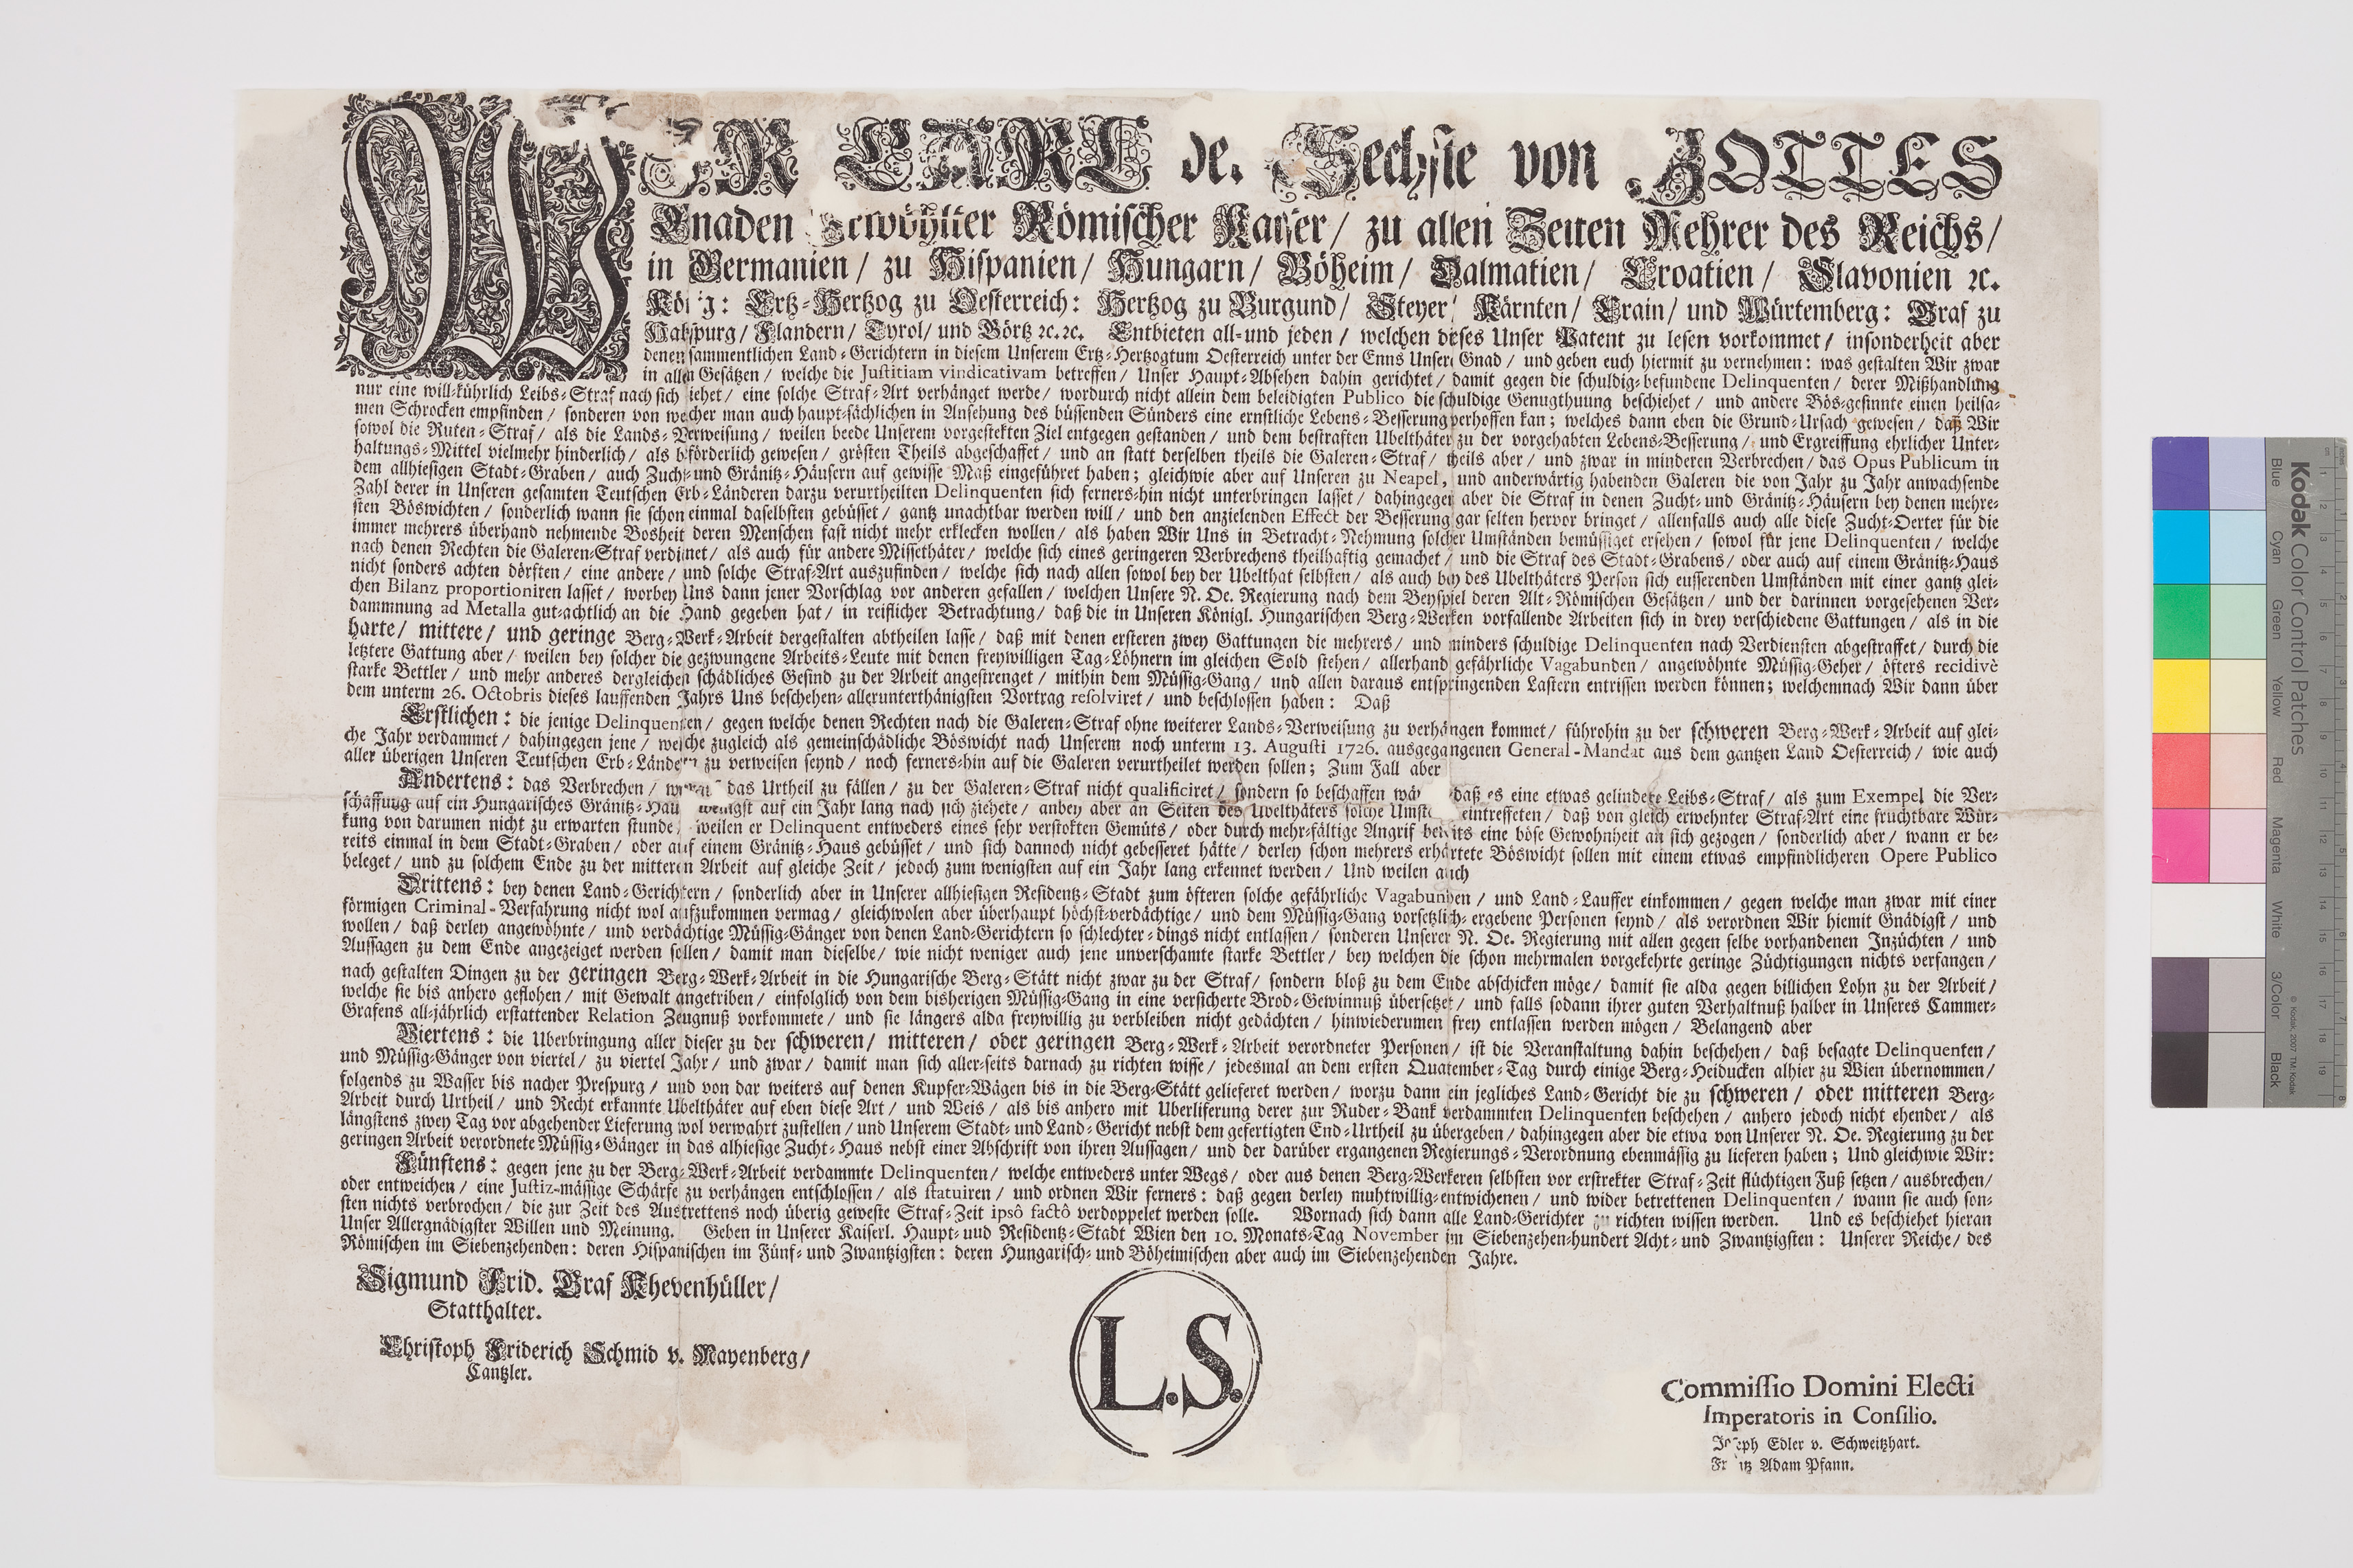 WIR CARL der Sechste von GOTTES
Gnaden Erwöhlter Römischer Kayser / zu allen Zeiten Mehrer des Reichs /
in Germanien / zu Hispanien / Hungarn / Böheim / Dalmatien / Croatien / Slavonien ꝛc.
König: Ertz-Hertzog zu Oesterreich: Hertzog zu Burgund / Steyer / Kärnten / Crain / und Würtemberg: Graf zu
Habspurg / Flandern / Tyrol / und Görtz ꝛc.ꝛc. Entbieten all-und jeden / welchen dieses Unser Patent zu lesen vorkommet / insonderheit aber
denen sammentlichen Land-Gerichtern in diesem Unserem Ertz-Hertzogtum Oesterreich unter der Enns Unsere Gnad / und geben euch hiermit zu vernehmen: was gestalten Wir zwar
in allen Gesätzen / welche die Justitiam vindicativam betreffen / Unser Haupt-Absehen dahin gerichtet / damit gegen die schuldig-befundene Delinquenten / derer Mißhandlung
nur eine will-kührlich Leibs-Straf nach sich ziehet / eine solche Straf-Art verhänget werde / wordurch nicht allein dem beleidigten Publico die schuldige Genugthuung beschiehet / und andere Bös-gesinnte einen heilsa-
men Schrocken empfinden / sonderen von welcher man auch haupt-sächlichen in Ansehung des büssenden Sünders eine ernstliche Lebens-Besserung verhoffen kan; welches dann eben die Grund-Ursach gewesen / daß Wir
sowol die Ruten-Straf / als die Lands-Verweisung / weilen beede Unserem vorgestekten Ziel entgegen gestanden / und dem bestraften Ubelthäter zu der vorgehabten Lebens-Besserung / und Ergreiffung ehrlicher Unter-
haltungs-Mittel vielmehr hinderlich / als beförderlich gewesen / grösten Theils abgeschaffet / und an statt derselben theils die Galeren-Straf / theils aber / und zwar in minderen Verbrechen / das Opus Publicum in
dem allhiesigen Stadt-Graben / auch Zucht-und Gränitz-Häusern auf gewisse Maß eingeführet haben; gleichwie aber auf Unseren zu Neapel, und anderwärtig habenden Galeren die von Jahr zu Jahr anwachsende
Zahl derer in Unseren gesamten Teutschen Erb-Länderen darzu verurtheilten Delinquenten sich ferners-hin nicht unterbringen lasset / dahingegen aber die Straf in denen Zucht-und Gränitz-Häusern bey denen mehre-
sten Böswichten / sonderlich wann sie schon einmal daselbsten gebüsset / gantz unachtbar werden will / und den anzielenden Effect der Besserung gar selten hervor bringet / allenfalls auch alle diese Zucht-Oerter für die
immer mehrers überhand nehmende Bosheit deren Menschen fast nicht mehr erklecken wollen / als haben Wir Uns in Betracht-Nehmung solcher Umständen bemüssiget ersehen / sowol für jene Delinquenten / welche
nach denen Rechten die Galeren-Straf verdienet / als auch für andere Missethäter / welche sich eines geringeren Verbrechens theilhaftig gemachet / und die Straf des Stadt-Grabens / oder auch auf einem Gränitz-Haus
nicht sonders achten dörften / eine andere / und solche Straf-Art auszufinden / welche sich nach allen sowol bey der Ubelthat selbsten / als auch bey des Ubelthäters Person sich eusserenden Umständen mit einer gantz glei-
chen Bilanz proportioniren lasset / worbey Uns dann jener Vorschlag vor anderen gefallen / welchen Unsere N. Oe. Regierung nach dem Beyspiel deren Alt-Römischen Gesätzen / und der darinnen vorgesehenen Ver-
dammnung ad Metalla gut-achtlich an die Hand gegeben hat / in reiflicher Betrachtung / daß die in Unseren Königl. Hungarischen Berg-Werken vorfallende Arbeiten sich in drey verschiedene Gattungen / als in die
harte / mittere / und geringe Berg-Werk-Arbeit dergestalten abtheilen lasse / daß mit denen ersteren zwey Gattungen die mehrers / und minders schuldige Delinquenten nach Verdiensten abgestraffet / durch die
letztere Gattung aber / weilen bey solcher die gezwungene Arbeits-Leute mit denen freywilligen Tag-Löhnern im gleichen Sold stehen / allerhand gefährliche Vagabunden / angewöhnte Müssig-Geher / öfters recidivè
starke Bettler / und mehr anderes dergleichen schädliches Gesind zu der Arbeit angestrenget / mithin dem Müssig-Gang / und allen daraus entspringenden Lastern entrissen werden können; welchemnach Wir dann über
dem unterm 26. Octobris dieses lauffenden Jahrs Uns beschehen-allerunterthänigsten Vortrag resolviret / und beschlossen haben: Daß
Erstlichen: die jenige Delinquenten / gegen welche denen Rechten nach die Galeren-Straf ohne weiterer Lands-Verweisung zu verhängen kommet / führohin zu der schweren Berg-Werk-Arbeit auf glei-
che Jahr verdammet / dahingegen jene / welche zugleich als gemeinschädliche Böswicht nach Unserem noch unterm 13. Augusti 1726. ausgegangenen General-Mandat aus dem gantzen Land Oesterreich / wie auch
aller überigen Unseren Teutschen Erb-Ländern zu verweisen seynd / noch ferners-hin auf die Galeren verurtheilet werden sollen; Zum Fall aber
Andertens: das Verbrechen / das Urtheil zu fällen / zu der Galeren-Straf nicht qualificiret / sondern so beschaffen wär daß es eine etwas gelindere Leibs-Straf / als zum Exempel die Ver-
schaffung auf ein Hungarisches Gränitz-Haus wenigst auf ein Jahr lang nach sich ziehete / anbey aber an Seiten des Ubelthäters solche Umständ eintreffeten / daß von gleich erwehnter Straf-Art eine fruchtbare Wür-
kung von darumen nicht zu erwarten stunde / weilen er Delinquent entweders eines sehr verstokten Gemüts / oder durch mehr-fältige Angrif bereits eine böse Gewohnheit an sich gezogen / sonderlich aber / wann er be-
reits einmal in dem Stadt-Graben / oder auf einem Gränitz-Haus gebüsset / und sich dannoch nicht gebesseret hätte / derley schon mehrers erhärtete Böswicht sollen mit einem etwas empfindlicheren Opere Publico
beleget / und zu solchem Ende zu der mitteren Arbeit auf gleiche Zeit / jedoch zum wenigsten auf ein Jahr lang erkennet werden / Und weilen auch
Drittens: bey denen Land-Gerichtern / sonderlich aber in Unserer allhiesigen Residentz-Stadt zum öfteren solche gefährliche Vagabunden / und Land-Lauffer einkommen / gegen welche man zwar mit einer
förmigen Criminal-Verfahrung nicht wol aufzukommen vermag / gleichwolen aber überhaupt höchst-verdächtige / und dem Müssig-Gang vorsetzlich-ergebene Personen seynd / als verordnen Wir hiemit Gnädigst / und
wollen / daß derley angewöhnte / und verdächtige Müssig-Gänger von denen Land-Gerichtern so schlechter-dings nicht entlassen / sonderen Unserer N. Oe. Regierung mit allen gegen selbe vorhandenen Inzüchten / und
Aussagen zu dem Ende angezeiget werden sollen / damit man dieselbe / wie nicht weniger auch jene unverschamte starke Bettler / bey welchen die schon mehrmalen vorgekehrte geringe Züchtigungen nichts verfangen /
nach gestalten Dingen zu der geringen Berg-Werk-Arbeit in die Hungarische Berg-Stätt nicht zwar zu der Straf / sondern bloß zu dem Ende abschicken möge / damit sie alda gegen billichen Lohn zu der Arbeit /
welche sie bis anhero geflohen / mit Gewalt angetriben / einfolglich von dem bisherigen Müssig-Gang in eine versicherte Brod-Gewinnuß übersetzet / und falls sodann ihrer guten Verhaltnuß halber in Unseres Cammer-
Grafens all-jährlich erstattender Relation Zeugnuß vorkommete / und sie längers alda freywillig zu verbleiben nicht gedächten / hinwiederumen frey entlassen werden mögen / Belangend aber
Viertens: die Uberbringung aller dieser zu der schweren / mitteren / oder geringen Berg-Werk-Arbeit verordneter Personen / ist die Veranstaltung dahin beschehen / daß besagte Delinquenten /
und Müssig-Gänger von viertel / zu viertel Jahr / und zwar / damit man sich aller-seits darnach zu richten wisse / jedesmal an dem ersten Quatember-Tag durch einige Berg-Heiducken alhier zu Wien übernommen /
folgends zu Wasser bis nacher Prespurg / und von dar weiters auf denen Kupfer-Wägen bis in die Berg-Stätt gelieferet werden / worzu dann ein jegliches Land-Gericht die zu schweren / oder mitteren Berg-
Arbeit durch Urtheil / und Recht erkannte Ubelthäter auf eben diese Art / und Weis / als bis anhero mit Uberliferung derer zur Ruder-Bank verdammten Delinquenten beschehen / anhero jedoch nicht ehender / als
längstens zwey Tag vor abgehender Lieferung wol verwahrt zustellen / und Unserem Stadt-und Land-Gericht nebst dem gefertigten End-Urtheil zu übergeben / dahingegen aber die etwa von Unserer N. Oe. Regierung zu der
geringen Arbeit verordnete Müssig-Gänger in das alhiesige Zucht-Haus nebst einer Abschrift von ihren Aussagen / und der darüber ergangenen Regierungs-Verordnung ebenmässig zu lieferen haben; Und gleichwie Wir:
Fünftens: gegen jene zu der Berg-Werk-Arbeit verdammte Delinquenten / welche entweders unter Wegs / oder aus denen Berg-Werkeren selbsten vor erstrekter Straf-Zeit flüchtigen Fuß setzen / ausbrechen /
oder entweichen / eine Justiz-mässige Schärfe zu verhängen entschlossen / als statuiren / und ordnen Wir ferners: daß gegen derley muhtwillig-entwichenen / und wider betrettenen Delinquenten / wann sie auch son-
sten nichts verbrochen / die zur Zeit des Austrettens noch überig geweste Straf-Zeit ipsô factô verdoppelet werden solle. Wornach sich dann alle Land-Gerichter zu richten wissen werden. Und es beschiehet hieran
Unser Allergnädigster Willen und Meinung. Geben in Unserer Kaiserl. Haupt-uud Residentz-Stadt Wien den 10. Monats-Tag November im Siebenzehen-hundert Acht-und Zwantzigsten: Unserer Reiche / des
Römischen im Siebenzehenden: deren Hispanischen im Fünf-und Zwantzigsten: deren Hungarisch-und Böheimischen aber auch im Siebenzehenden Jahre.
Sigmund Frid. Graf Khevenhüller /
Statthalter.
Christoph Friderich Schmid v. Mayenberg /
Cantzler.
L.S.
Commissio Domini Electi
Imperatoris in Consilio.
Joseph Edler v. Schweitzhart.
Frantz Adam Pfann.
Kodak Color Control Patches
Blue Cyan Green Yellow Red Magenta White 3/Color Black
© Kodak, 2007 TM: Kodak